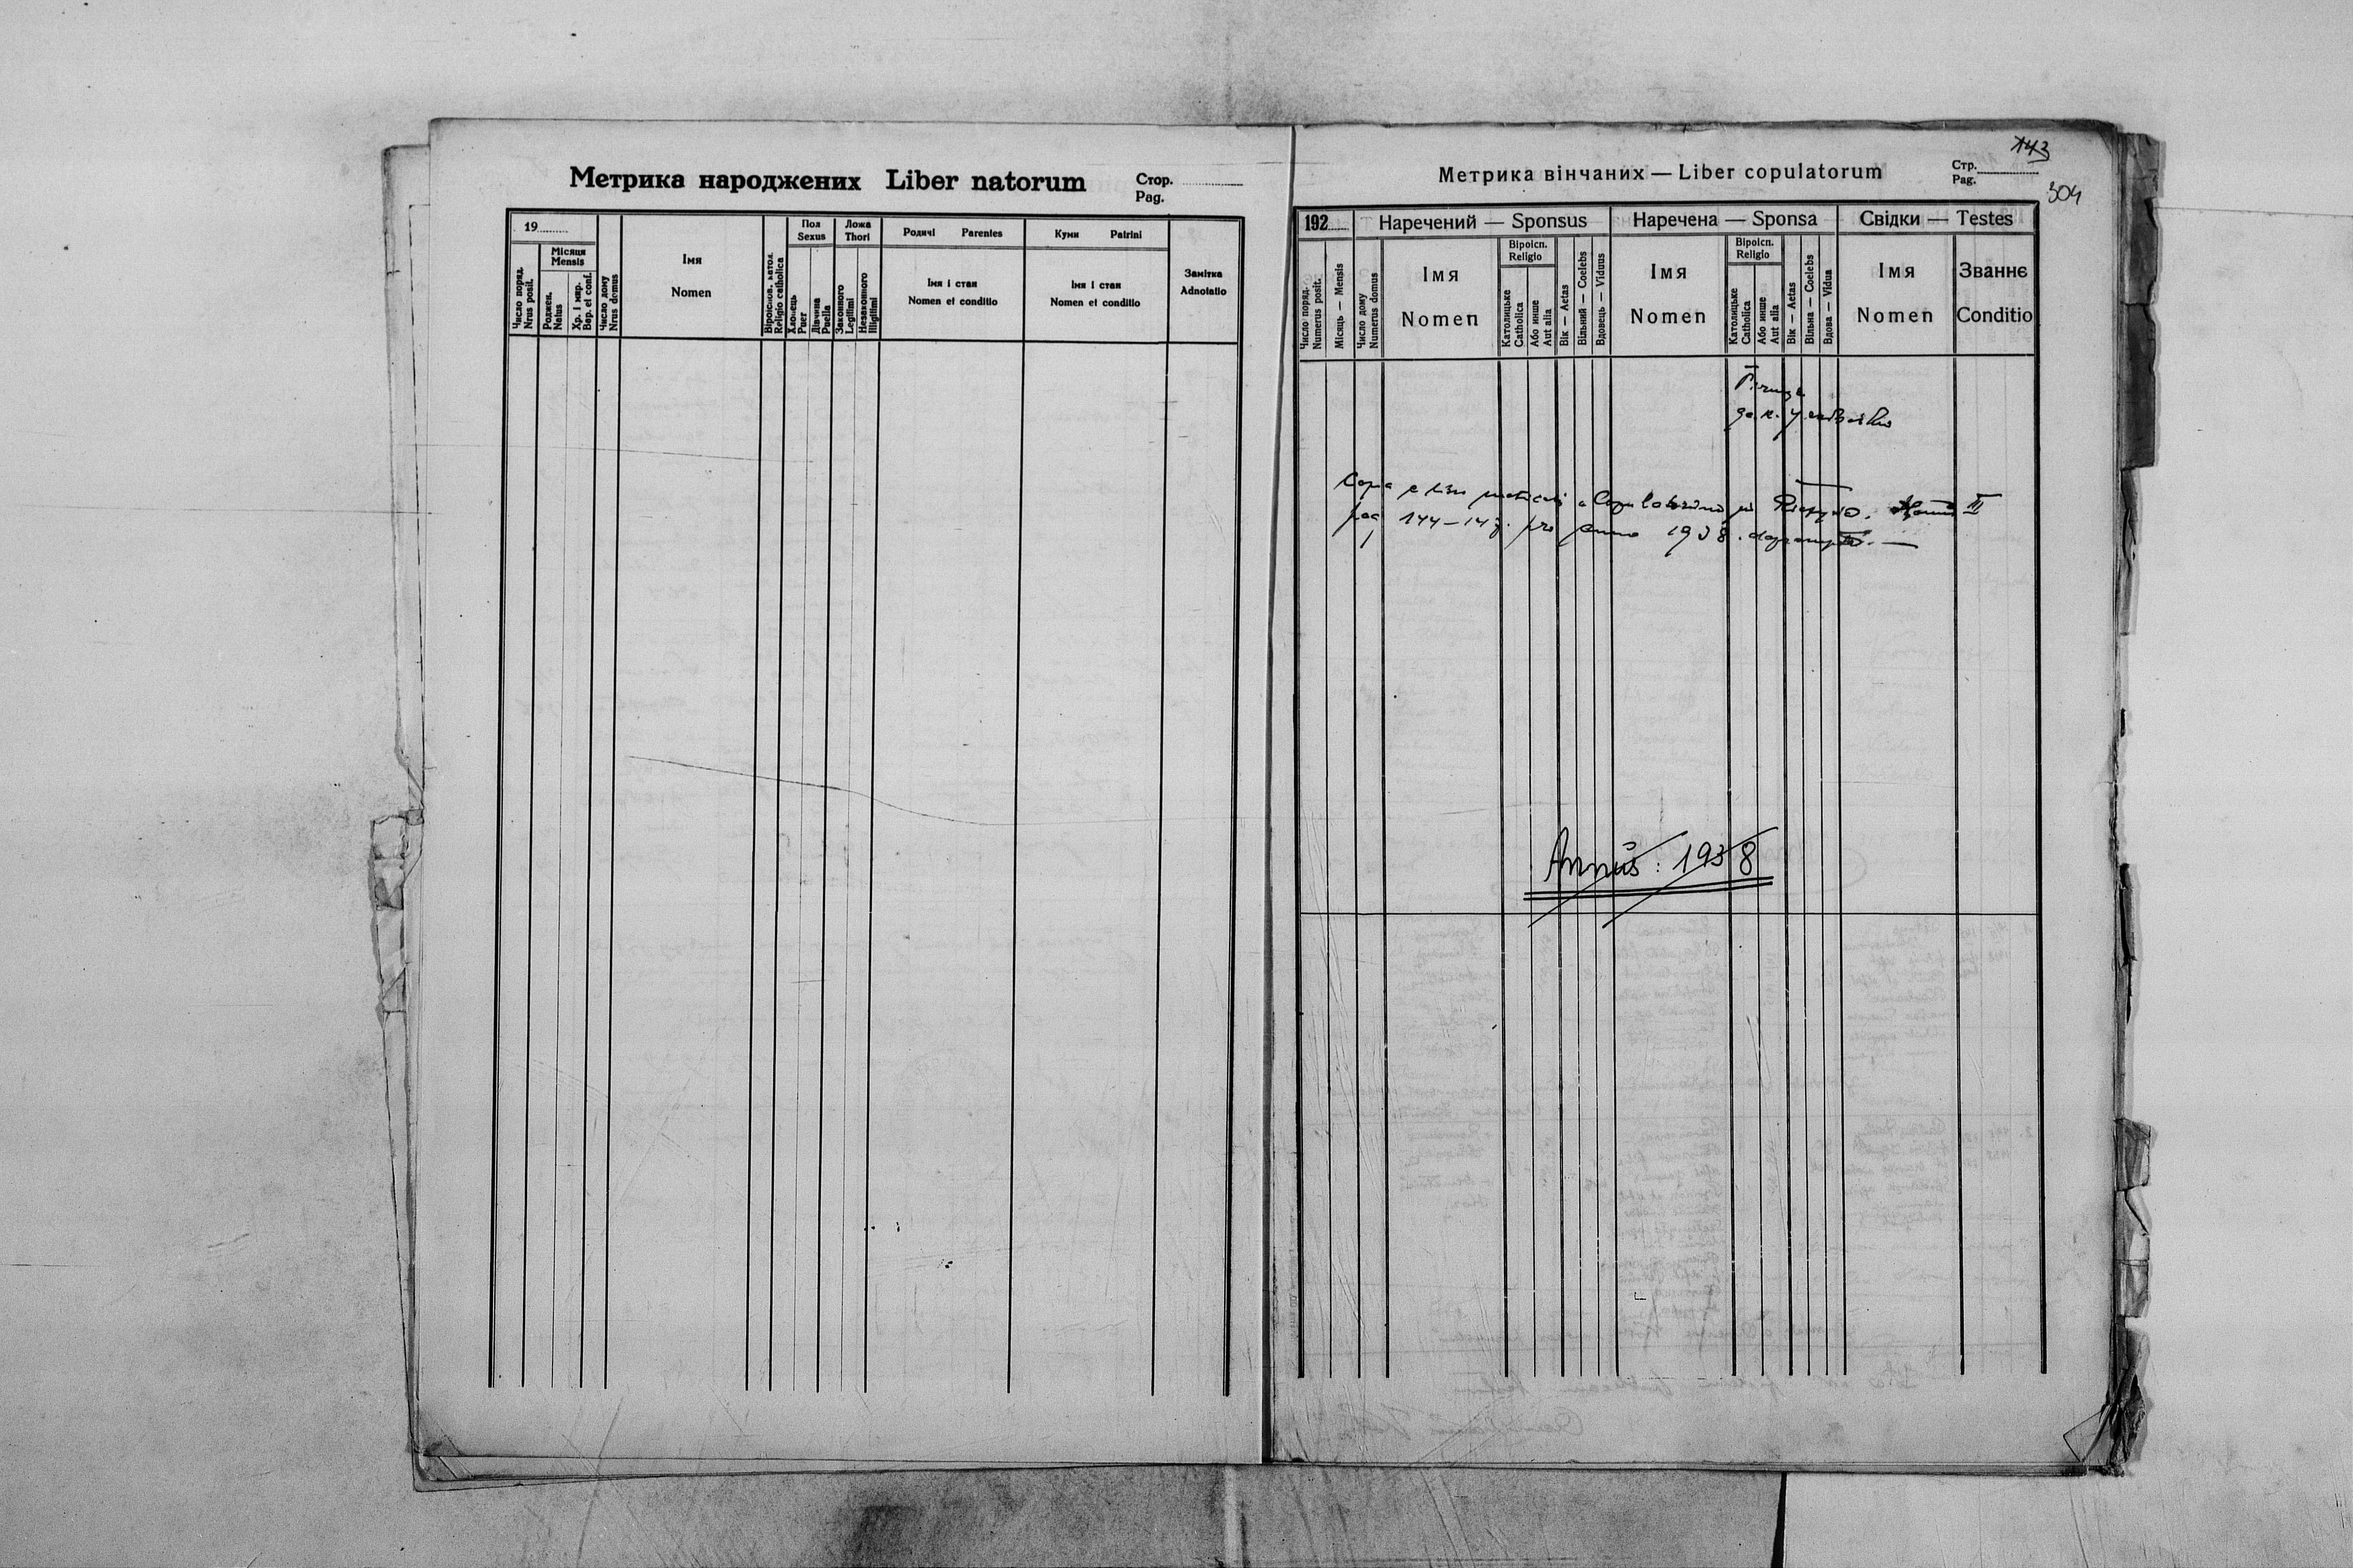 Метрика народжених Liber natorum
Стор.
Pag.
19
Число поряд.
Nrus posit.
Місяця
Mensis
Роджен.
Natus
Хр. і мир.
Bap. et conf.
Число дому
Nrus domus
Імя
Nomen
Religio catholica
Пол
Sexus
Хлопець
Puer
Дівчина
Puella
Ложа
Thori
Законного
Legitimi
Незаконного
Illigitimi
Родичі Parentes
Імя і стан
Nomen et conditio
Куми Patrini
Імя і стан
Nomen et conditio
Замітка
Adnotatio
143
Метрика вінчаних — Liber copulatorum
Стр.
Pag.
304
192
Число поряд.
Numerus posit.
Місяць — Mensis
Наречений — Sponsus
Число дому
Numerus domus
Імя
Nomen
Віроісп.
Religio
Католицьке
Catholica
Або инше
Aut alia
Вік — Aetas
Вільний — Coelebs
Вдовець — Viduus
Наречена — Sponsa
Імя
Nomen
Віроісп.
Religio
Католицьке
Catholica
Або инше
Aut alia
Вік — Aetas
Вільна — Coelebs
Вдова — Vidua
Свідки — Testes
Імя
Nomen
Званнє
Conditio
Copia e Copulatorum III
pag 144-147. pro anno 1938.
Annus: 1938